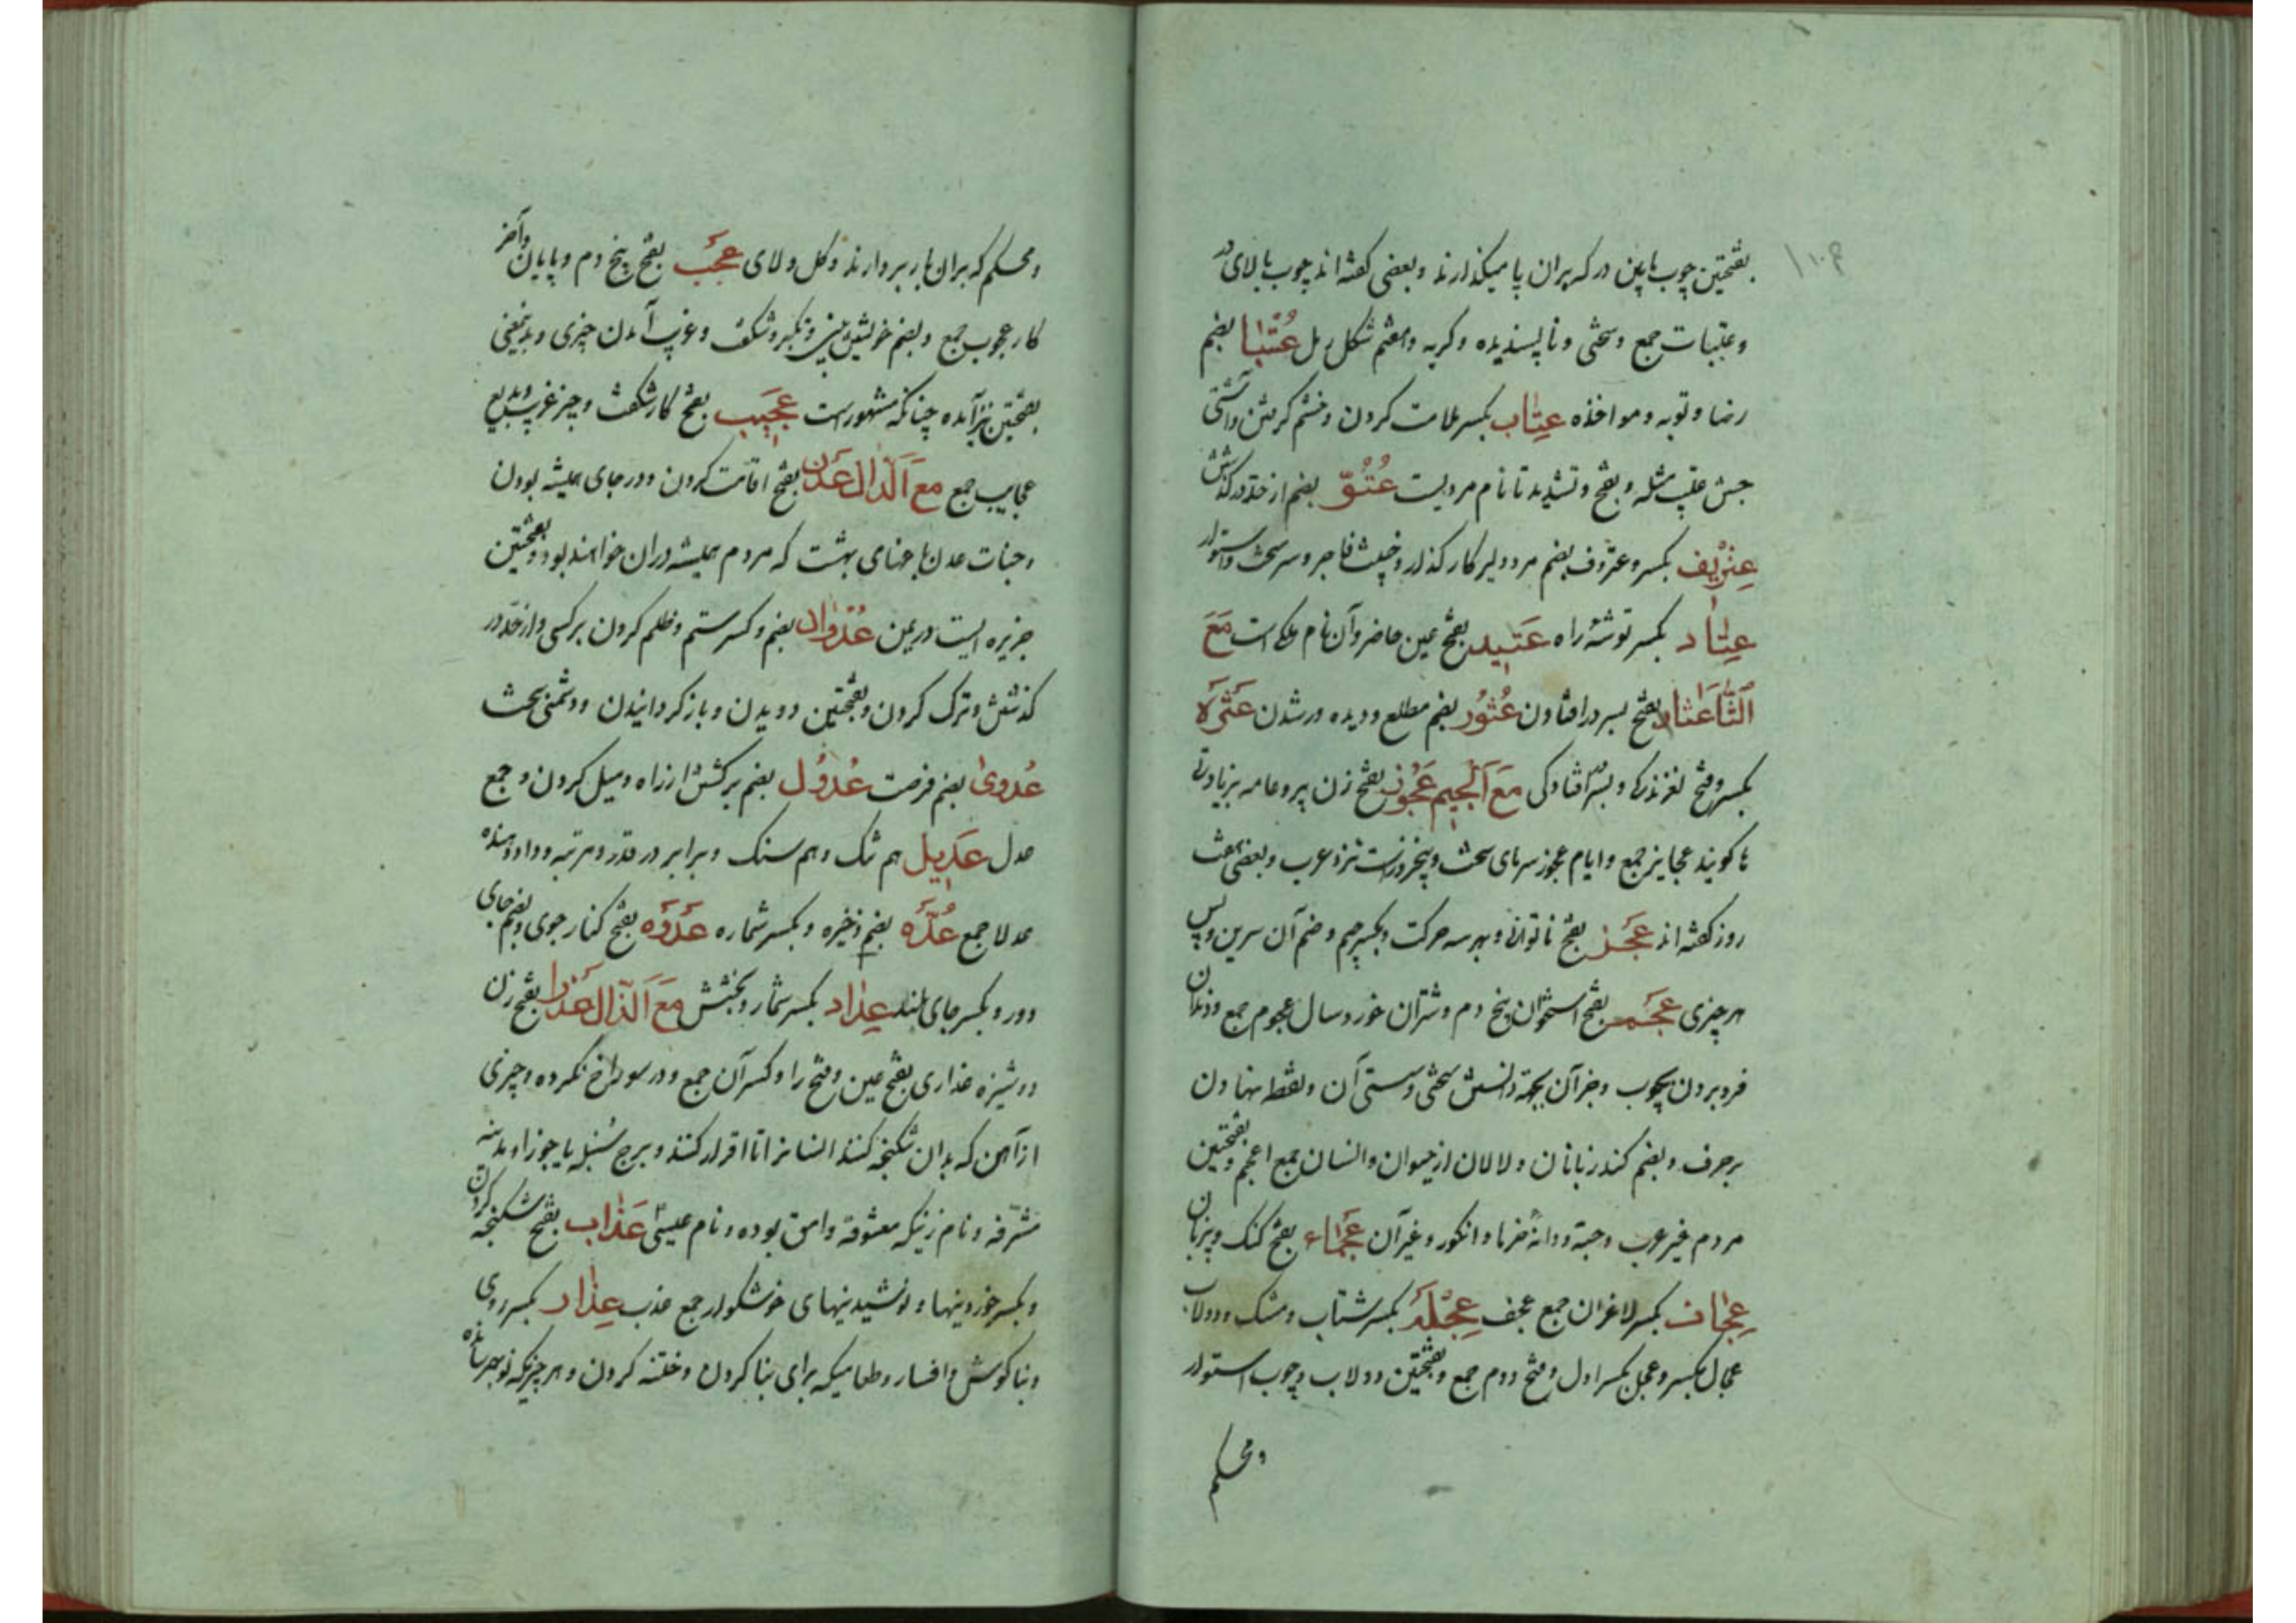 بفتحتین چوب پایین در که بران پا میکذارند و بعضی کفته اند چوب بالای در
و عتبات جمع و سختی و ناپسندیده و کریه و بضم شکل رمل عُتبا بضم
رضا و توبه و مواخذه عِتاب بکسر ملامت کردن و خشم کرفتن و آشتی
جستن عتیب مثله و بفتح و تشدید تا نام مردیست عُتُوّ بضم از حد در کذشتن
عِتریف بکسر و عتروف بضم مرد دلیر کارکذار و خبیث فاجر و سرسخت و استوار
عِتاد بکسر توشهٔ راه عَتید بفتح عین حاضر و آن نام ملکی است مَعَ
الثّا عثار بفتح بسر در افتادن عُثوُر بضم مطلع و دیده ور شدن عَثَرة
بکسر و فتح لغزندکی و بسر افتادکی مَعَ اَلجیم عَجُوز بفتح زن پیر و عامه بزیادتی
تا کویند عجایز جمع و ایام عجوز سرمای سخت و پنجروزست نزد عرب و بعضی هفت
روز کفته اند عَجز بفتح ناتوانی و بهر سه حرکت و بکسر جیم و ضم آن سرین و پس
هر چیزی عَجم بفتح استخوان بیخ دم و شتران خورد سال عجوم جمع و دندان
فرو بردن بچوب و جز آن بجهة دانستن سختی و سستی آن و نقطه نهادن
بر حرف و بضم کند زبانان و لالان از حیوان و انسان جمع اعجم و بفتحتین
مردم غیر عرب و حبّة و دانهٔ خرما و انکور و غیر آن عَجماء بفتح کنک و بیزبان
عِجاف بکسر لاغران جمع عجف عِجلَة بکسر شتاب و مشک و دولاب
عجال بکسر و عجل بکسر اول و فتح دوم جمع و بفتحتین دولاب و چوب استوار
و محکم
و محکم که بران بار بردارند و کل و لای عَجب بفتح بیخ دم و پایان و آخر
کار عجوب جمع و بضم خویشتن بینی و تکبر و شکفت و غریب آمدن چیزی و بدینمعنی
بفتحتین نیز آمده چنانکه مشهور است عَجیب بفتح کار شکفت و چیز غریب و بدیع
عجایب جمع مع اَلدّال عَدن بفتح اقامت کردن و در جای همیشه بودن
و جنات عدن باغهای بهشت که مردم همیشه دران خواهند بود و بفتحتین
جزیره ایست در یمن عُدوان بضم و کسر ستم و ظلم کردن بر کسی و از حد در
کذشتن و ترک کردن و بفتحتین دویدن و باز کردانیدن و دشمنی سخت
عُدوی بضم فرصت عُدوُل بضم برکشتن از راه و میل کردن و جمع
عدل عَدیل هم تنک و هم سنک و برابر در قدر و مرتبه و داد دهنده
عدلا جمع عُدَّه بضم ذخیره و بکسر شماره عَدوَه بفتح کنار جوی و بضم جای
دور و بکسر جای بلند عِداد بکسر شمار و بخشش مَعَ اَلذّال عَذرا بفتح زن
دوشیزه عذاری بفتح عین و فتح را و کسر آن جمع و در سوراخ نکرده و چیزی
از آهن که بدان شکنجه کنند انسانرا تا اقرار کنند و برج سُنبله یا جوزا و مدینه
مشرّفه و نام زنیکه معشوقه وامق بوده و نام عیسی عَذاب بفتح شکنجه کردن
و بکسر خوردینها و نوشیدینهای خوشکوار جمع عذب عِذار بکسر روی
و بناکوش و افسار و طعامیکه برای بنا کردن و ختنه کردن و هر چیزیکه نو بهم رسانیده